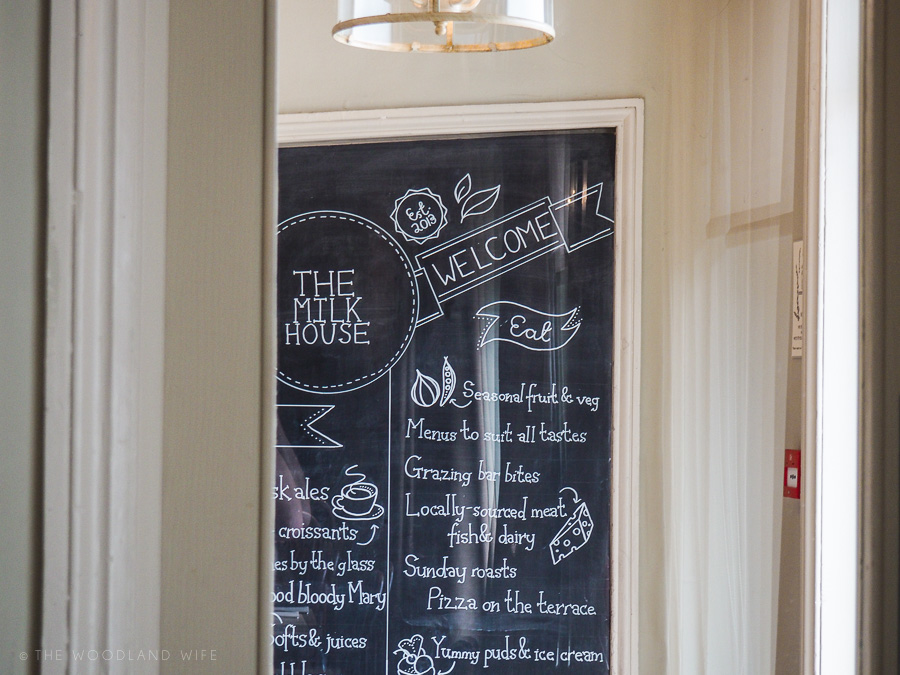 Est.
2013
WELCOME
THE
MILK
HOUSE
Eat
Seasonal fruit & veg
Menus to suit all tastes
Grazing bar bites
Locally-sourced meat
fish & dairy
Sunday roasts
Pizza on the terrace
Yummy puds & ice cream
ales
croissants
by the glass
bloody Mary
& juices
© THE WOODLAND WIFE